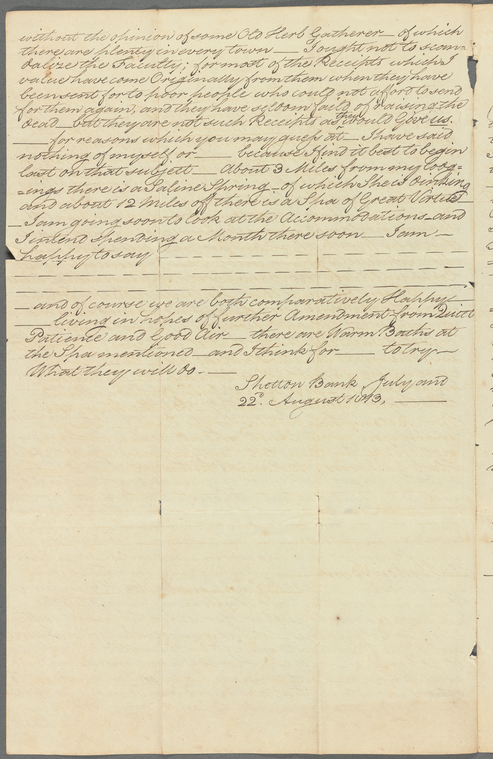 without the opinion of some Old Herb Gatherer — of which
there are plenty in every town — I ought not to scan
dalize the Faculty; for most of the Receipts which I
value have come Originally from them when they have
been sent for to poor people who could not afort to send
for them again, and they have seldom faild of raising the
Dead — but they are not such Receipts as they would Give us.
— for reasons which you may guess at — I have said
nothing of myself or — because I find it best to begin
last on that subject — About 3 Miles from my lodg=
=ings there is a Saline Spring — of which She is drinking
and about 12 Miles off there is a Spa of Great Virtue
— I am going soon to look at the Accommodations — and
I intent Spending a Month there soon — I am —
happy to say
— and of course we are both comparatively Happy
— living in hopes of further Amendment from Quiet
Patience and Good Air — there are Warm Baths at
the Spa mentioned — and I think for — to try —
What they will do. —
Shelton Bank July and
22d. August